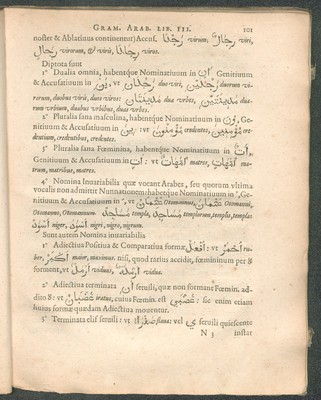 GRAM. ARAB. LIB. III. 101
noster & Ablatiuus continentur) Accus. رَجُلًا virum, رِجَالٌ viri,
رِجَالٍ virorum, & viris, رِجَالًا viros.
Diptota sunt
1° Dualia omnia, habentque Nominatiuum in اَنِ Genitiuum
& Accusatiuum in يْنِ, vt رَجُلَانِ duo viri رَجُلَيْنِ duorum vi-
rorum, duobus viris, duos viros: مَدِينَتَانِ duæ vrbes, duarum
vrbium, duabus vrbibus, duas vrbes.
2° Pluralia sana masculina, habentque Nominatiuum in ونَ, Ge-
nitiuum & Accusatiuum in ينَ: vt مُؤْمِنُونَ credentes, مُؤْمِنِينَ cre-
dentium, credentibus, credentes.
3° Pluralia sana Fœminina, habentque Nominatiuum in اتٌ,
Genitiuum & Accusatiuum in اتٍ: vt أُمَّهَاتٌ matres, أُمَّهَاتٍ ma-
trum, matribus, matres.
4° Nomina Inuariabilia quæ vocant Arabes, seu quorum vltima
vocalis non admittit Nunnationem: habentque Nominatiuum in
Genitiuum & Accusatiuum in vt عُثْمَانُ Otomannus, عُثْمَانَ
Otomanno, Otomannum مَسَاجِدُ templa, مَسَاجِدَ templorum, templis, templa:
أَسْوَدُ niger, أَسْوَدَ nigri, nigro, nigrum.
Sunt autem Nomina inuariabilia
1° Adiectiua Positiua & Comparatiua formæ أَفْعَلُ: vt أَحْمَرُ ru-
ber, أَكْبَرُ maior, maximus. nisi, quod rarius accidit, fœmininum per ة
forment, vt أَرْمَلٌ viduus, أَرْمَلَةٌ vidua.
2° Adiectiua terminata ان seruili, quæ non formant Fœmin. ad-
dito ة: vt غَضْبَانُ iratus, cuius Fœmin. est غَضْبَى: sic enim etiam
huius formæ quædam Adiectiua mouentur.
3° Terminata elif seruili: vt صَفْرَاءُ flaua: vel ى seruili quiescente
N 3 instar